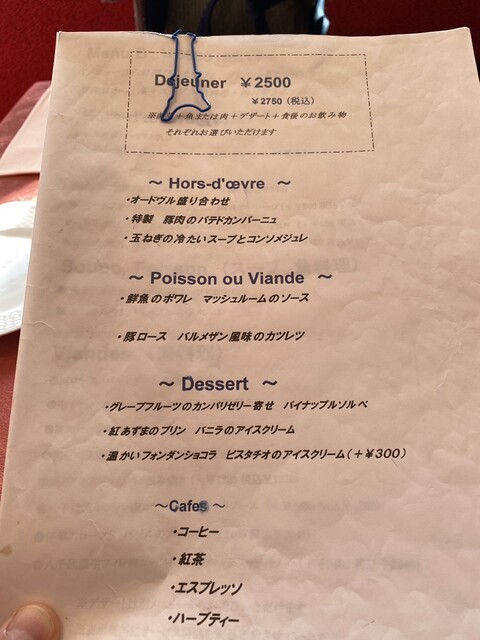 Dejeuner ￥2500
￥2750（税込）
＋魚または肉＋デザート＋食後のお飲み物
それぞれお選びいただけます
～ Hors-d'œvre ～
・オードヴル盛り合わせ
・特製 豚肉のパテドカンパーニュ
・玉ねぎの冷たいスープとコンソメジュレ
～ Poisson ou Viande ～
・鮮魚のポワレ マッシュルームのソース
・豚ロース パルメザン風味のカツレツ
～ Dessert ～
・グレープフルーツのカンパリゼリー寄せ パイナップルソルベ
・紅あずまのプリン バニラのアイスクリーム
・温かいフォンダンショコラ ピスタチオのアイスクリーム（＋￥300）
～Cafes～
・コーヒー
・紅茶
・エスプレッソ
・ハーブティー